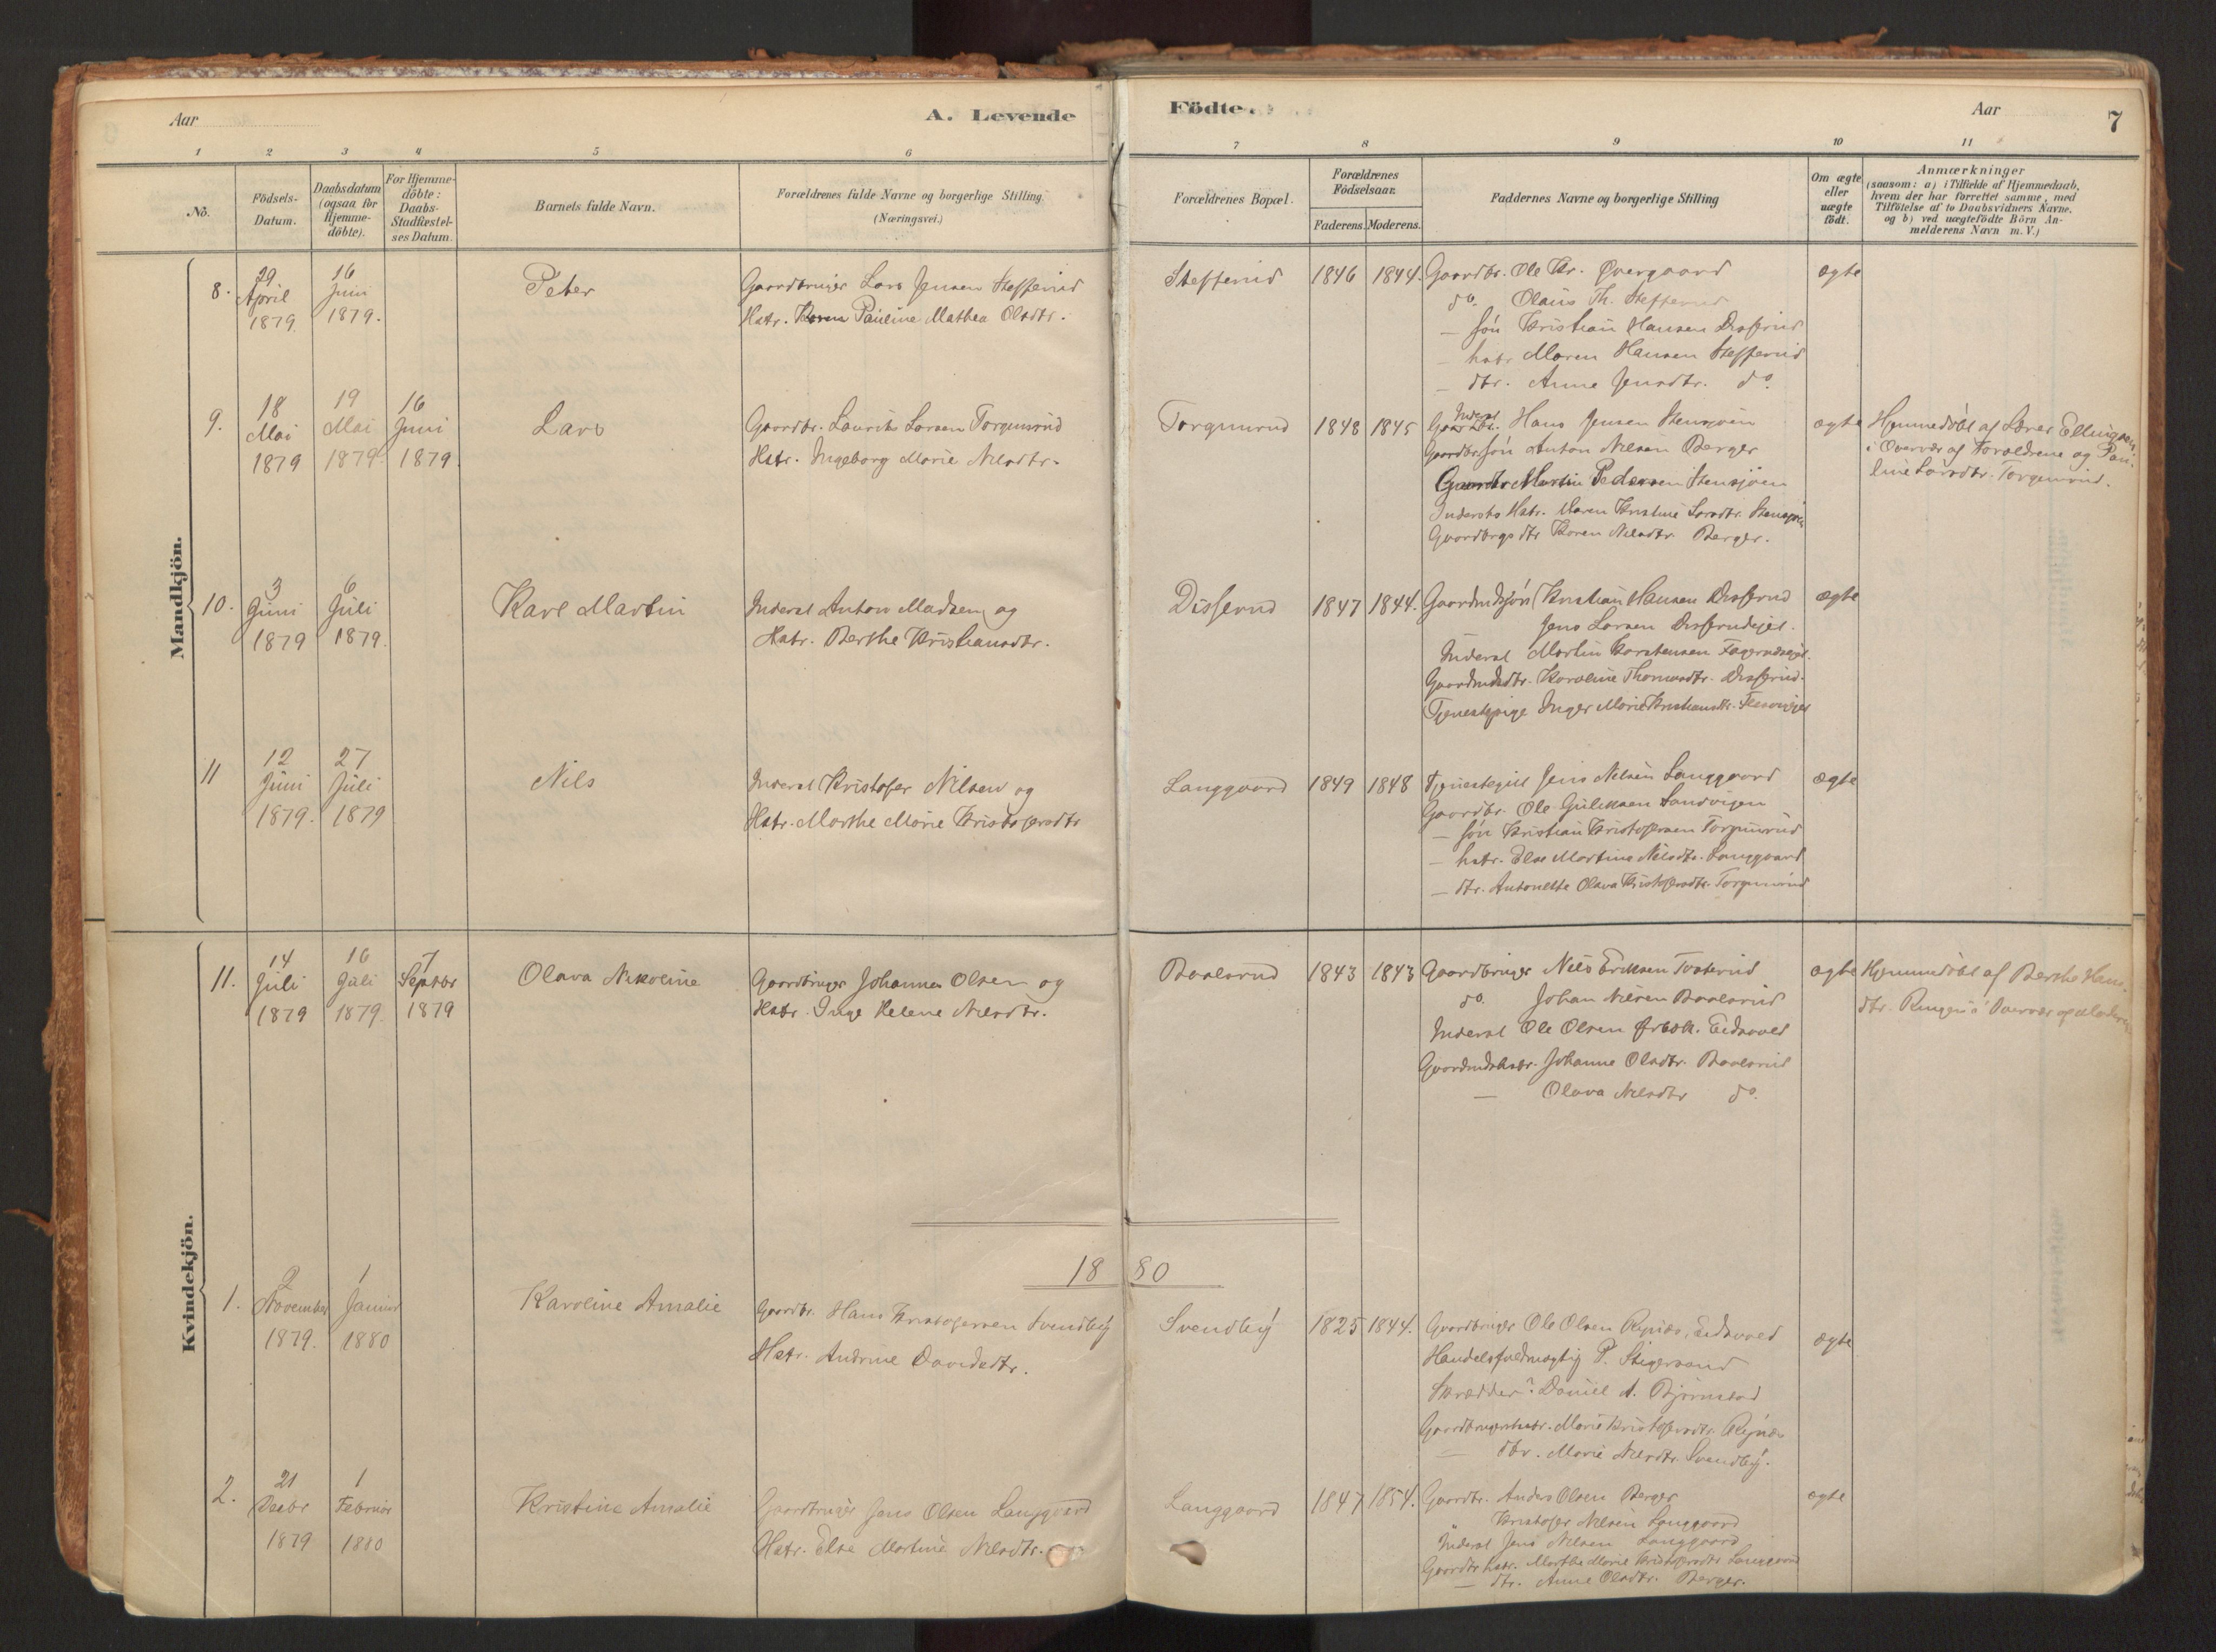 Aar
A. Levende
Födte.
Aar
7
1 2 3 4 5 6 7 8 9 10 11
No.
Födsels-
Datum.
Daabsdatum
(ogsaa for
Hjemme-
döbte).
For Hjemme-
döbte:
Daabs-
Stadfæstel-
ses Datum.
Barnets fulde Navn.
Forældrenes fulde Navne og borgerlige Stilling
(Næringsvei.)
Forældrenes Bopæl.
Forældrenes
Födselsaar.
Faderens. Moderens.
Faddernes Navne og borgerlige Stilling
Om ægte
eller
uægte
födt.
Anmærkninger
(saasom: a) i Tilfælde af Hjemmedaab,
hvem der har forrettet samme, med
Tilföielse af to Daabsvidners Navne,
og b) ved uægtefödte Börn An-
melderens Navn m. V.)
Mandkjön.
8.
29
April
1879.
16
Juni
1879.
Peter
Gaardbruger Lars Jensen Steffenrud
Hstr. Karen Pauline Mathea Olsdtr.
Steffenrud
1846
1844.
Gaardbr. Ole Kr. Øvergaard
do. Olaus Th. Steffenrud
— søn Kristian Hansen Disserud
— hstr Maren Hansen Steffenrud
— dtr. Anne Jensdtr. do.
ægte
9.
18
Mai
1879
19
Mai
1879
16
Juni
1879.
Lars
Gaardbr. Laurits Larsen Torgunrud
Hstr. Ingeborg Marie Nilsdtr.
Torgunrud
1848
1845
Inderst
Gaardbr. Hans Jensen Stensjøen
Gaardbr.søn Anton Nilsen Berger
Gaardbr Martin Pedersen Stensjøen
Indersts Hstr. Maren Kristine Larsdtr. Stensjøen
Gaardbrgs dtr Karen Nilsdtr Berger.
ægte
Hjemmedøbt af Lærer Ellingsen
i Overvær af Forældrene og Pau-
line Larsdtr. Torgunrud.
10.
3
Juni
1879
6
Juli
1879.
Karl Martin
Inderst Anton Madsen og
Hstr. Berthe Kristiansdtr.
Disserud
1847
1844.
Gaardmdssøn Kristian Hansen Disserud
Jens Larsen Disserudejet.
Inderst Martin Karstensen
Gaardmdsdtr. Karoline Thorvardtr. Disserud.
Tjenestepige Inger Marie Kristiansdtr.
ægte
11
12
Juni
1879.
27
Juli
1879
Nils
Inderst Kristofer Nilsen og
Hstr. Marthe Marie Kristofersdtr
Langgaard
1849
1848
Tjenestegut Jens Nilsen Langgaard
Gaardbr. Ole Guliksen Sandvigen
— søn Kristian Kristofersen Torgunrud
— hstr. Else Martine Nilsdtr. Langgaard
— dtr. Antonette Olava Kristofersdtr. Torgunrud
ægte
Kvindekjön.
11.
14
Juli
1879
16
Juli
1879.
7
Septbr
1879
Olava Nikoline
Gaardbruger Johannes Olsen og
Hstr. Inge Helene Nilsdtr.
Baalsrud
1843
1843
Gaardbruger Nils Eriksen Tosterud
do. Johan Nilsen Baalsrud
Inderst Ole Olsen Eidsvold
Gaardmdshstr. Johanne Olsdtr. Baalsrud
— Olava Nilsdtr do.
ægte
Hjemmedøbt af Berthe Hans-
dtr. Ringen i Overvær af Moderen
1880
1.
2
November
1879.
1
Januar
1880
Karoline Amalie
Gaardbr. Hans Kristofersen Svendby
Hstr. Andrine Davidsdtr.
Svendby
1825
1844.
Gaardbruger Ole Olsen Rynæs, Eidsvold
Handelsfuldmægtig P. Stigersand
Skrædder Daniel A. Bjørnstad
Gaardbrugerhstr. Marie Kristofersdtr. Rynæs
— dtr. Marie Nilsdtr. Svendby.
ægte
2.
21
Decbr
1879
1
Februar
1880
Kristine Amalie
Gaardbruger Jens Olsen Langgaard
Hstr. Else Martine Nilsdtr.
Langgaard
1847
1854.
Gaardbr. Anders Olsen Berger
Kristofer Nilsen Langgaard
Inderst Jens Nilsen Langgaard
Gaardbr hstr. Marthe Marie Kristofersdtr Langgaard
— dtr. Anne Olsdtr. Berger.
ægte